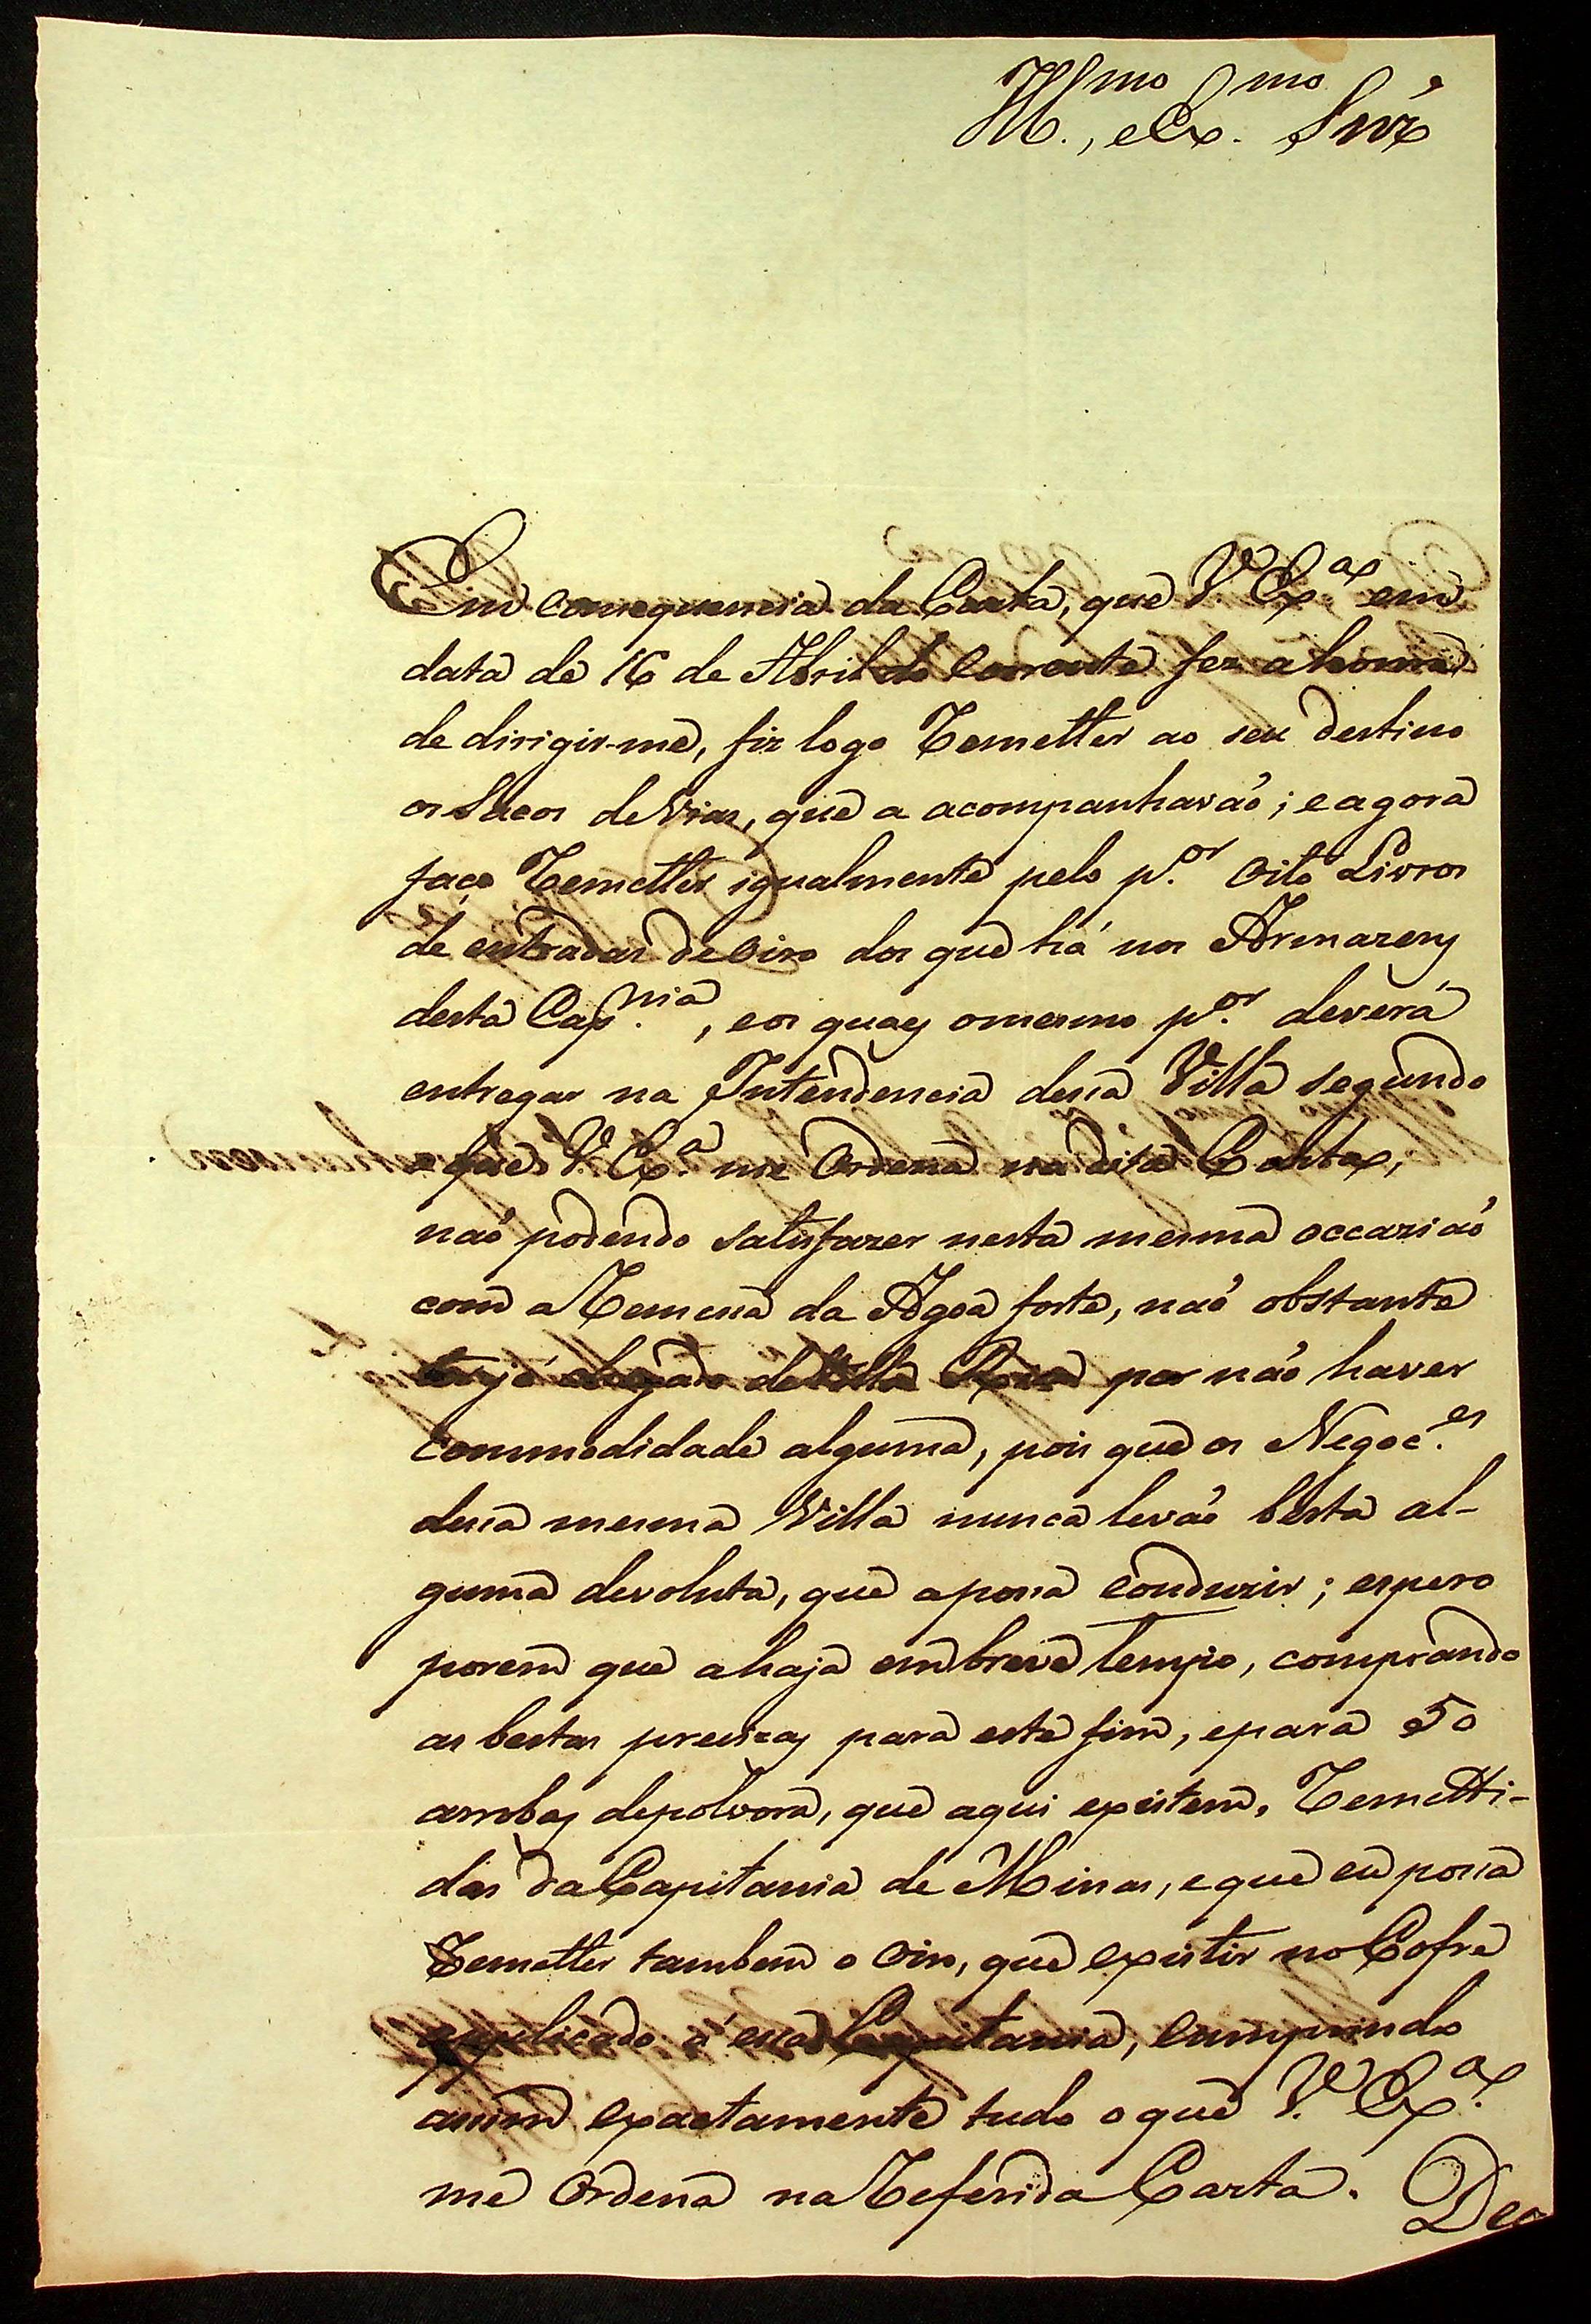 Ill.mo, e Ex.mo Snr.
Em consequencia da Carta, que V. Ex.a em
data de 16 de Abril do Corrente fez a honra
de dirigir-me, fiz logo Remetter ao seu destino
os Sacos de Vias, que a acompanhavaõ; e agora
faço Remetter igualmente pelo p.or Oito Livros
de entradas de Oiro dos que há nos Armazens
desta Cap.nia, e os quaes o mesmo p.or deverá
entregar na Intendencia dessa Villa segundo
o que V. Ex.a me Ordena na dita Carta,
naõ podendo satisfazer nesta mesma occaziaõ
com a Remessa da Agoa forte, naõ obstante
ter já chegado de Villa Rica por naõ haver
Commodidade alguma, pois que os Negoc.es
dessa mesma Villa nunca levaõ besta al-
guma devoluta, que a possa Conduzir; espero
porem que a haja em breve tempo, comprando
as bestas precizas para este fim, e para 50
arrobas de polvora, que aqui existem, Remetti-
das da Capitania de Minas, e que eu possa
Remetter tambem o Oiro, que existir no Cofre
applicado á essa Capitania, Cumprindo
assim exactamente tudo o que V. Ex.a
me Ordena na Referida Carta. Deo